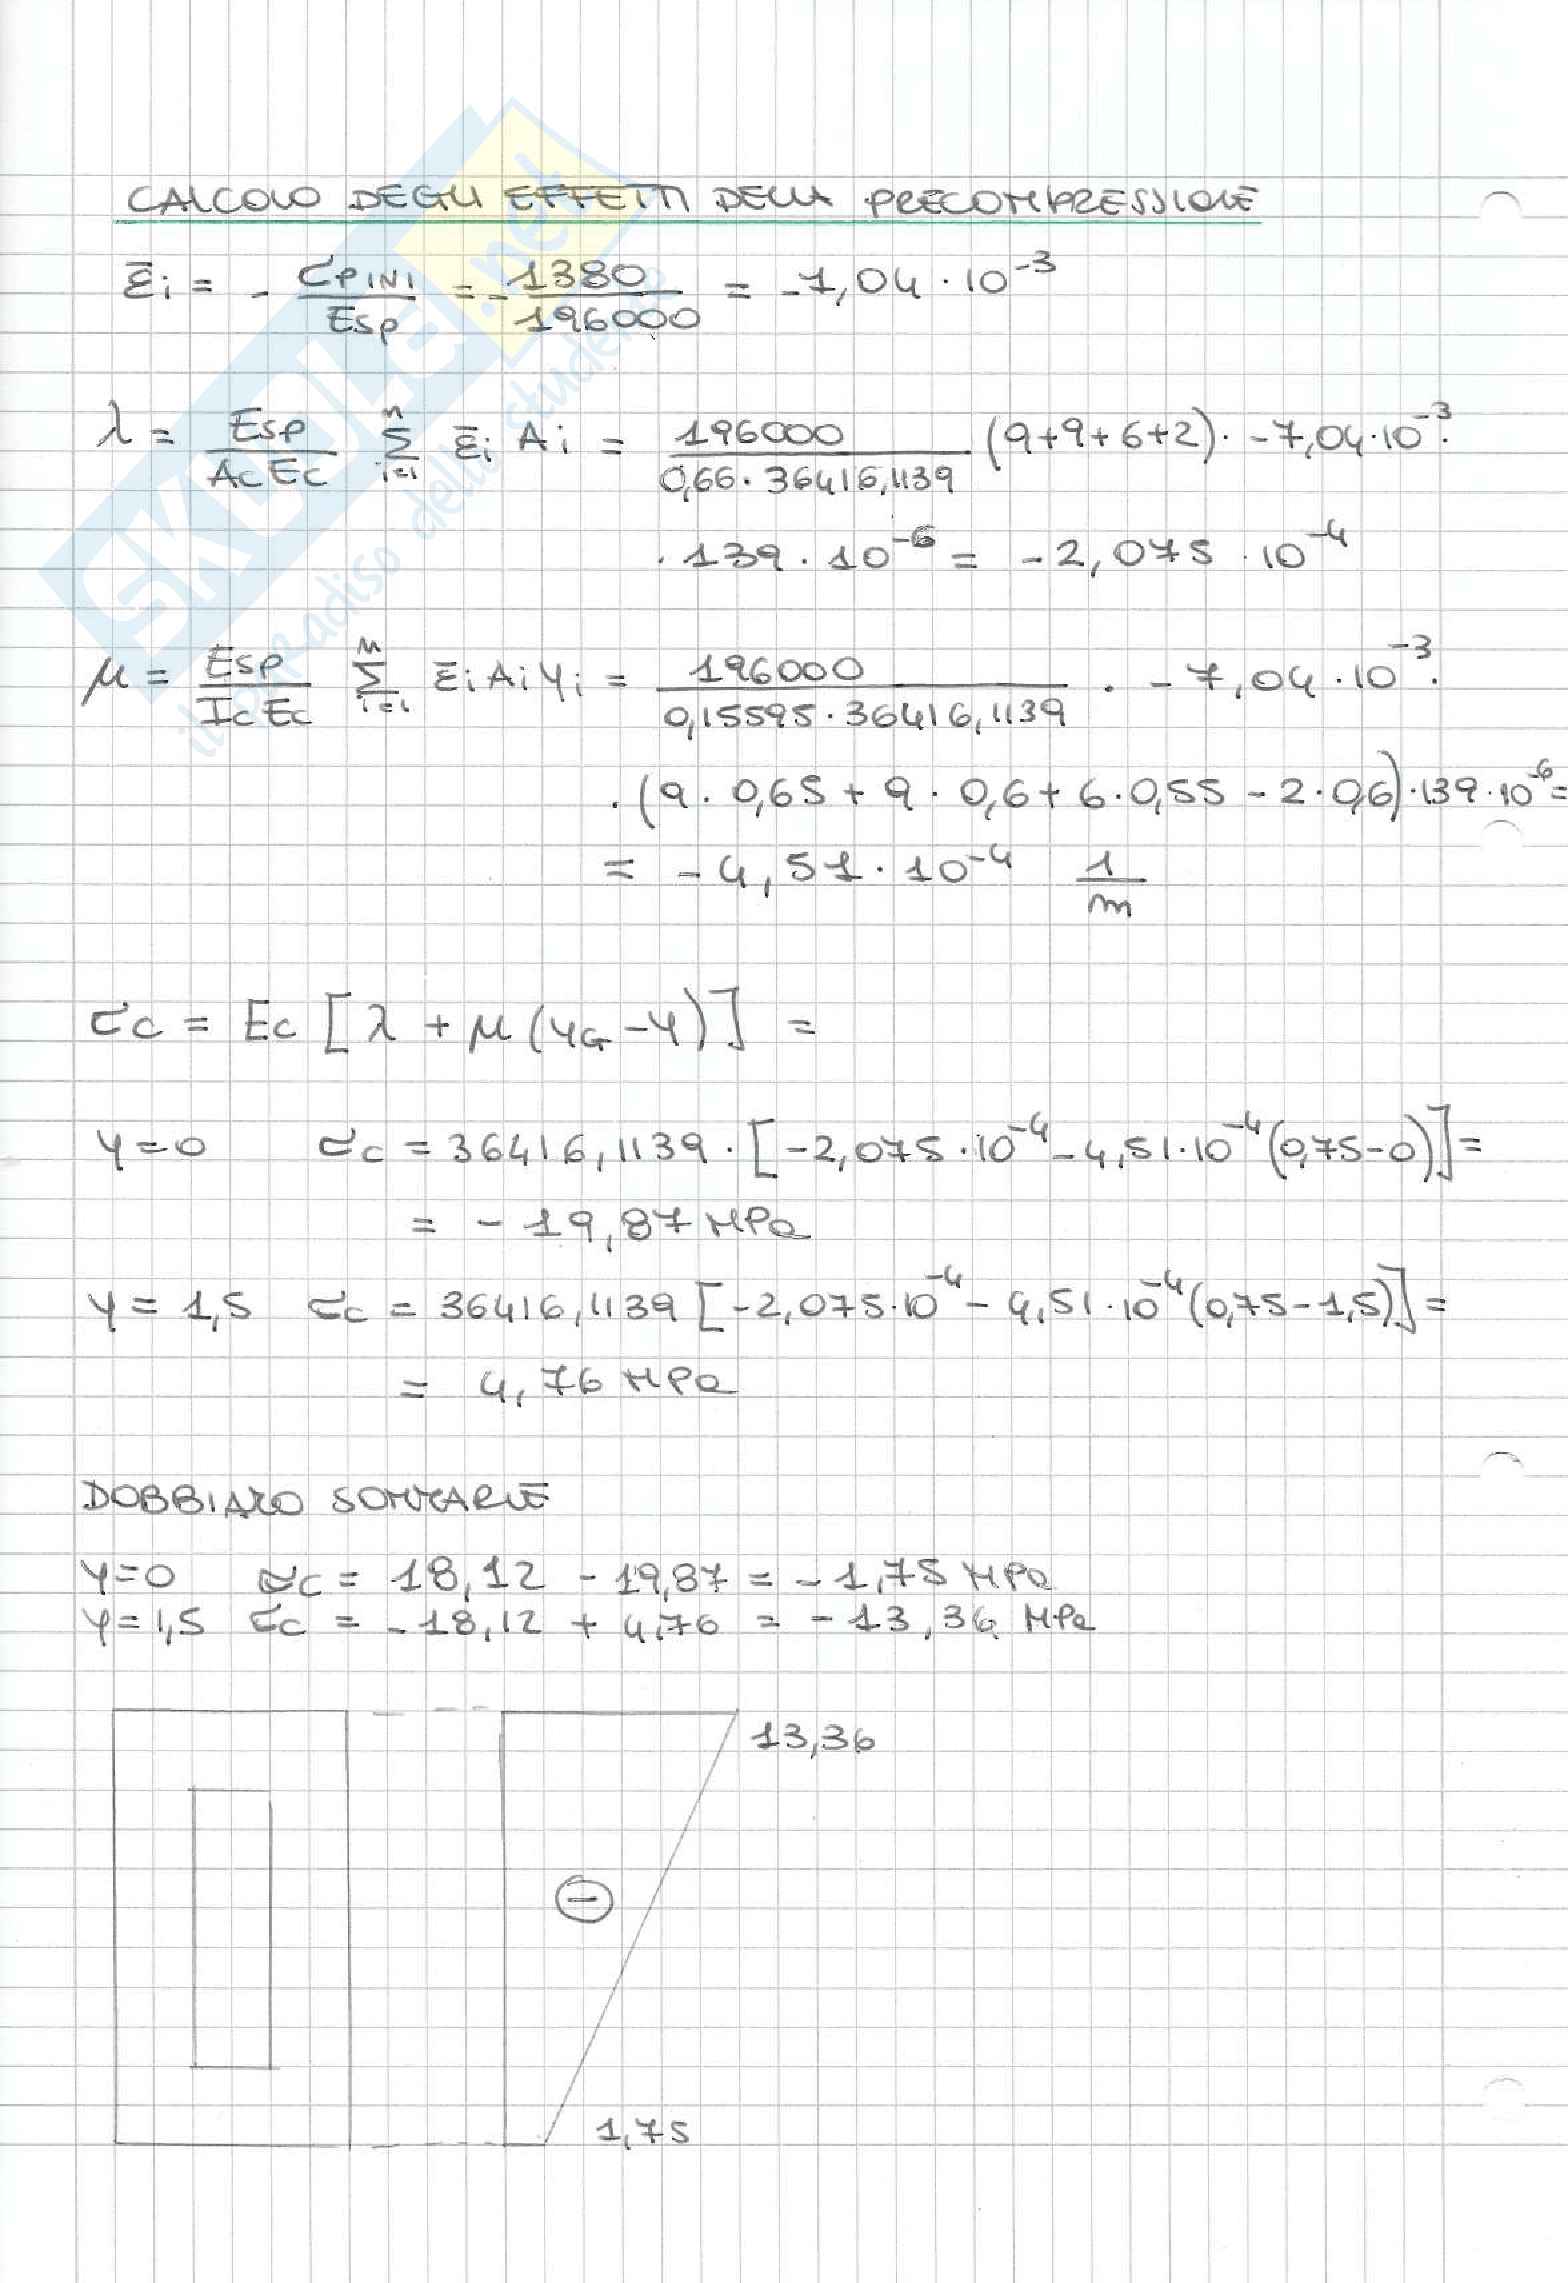 CALCOLO DEGLI EFFETTI DELLA PRECOMPRESSIONE
ε̄i = - σPINI/Esp = - 1380/196000 = -7,04 · 10⁻³
λ = Esp/(Ac Ec) Σ(i=1, n) ε̄i Ai = 196000/(0,66 · 36416,1139) (9+9+6+2) · -7,04·10⁻³ ·
· 139 · 10⁻⁶ = -2,075 · 10⁻⁴
μ = Esp/(Ic Ec) Σ(i=1, n) ε̄i Ai yi = 196000/(0,15595 · 36416,1139) · -7,04 · 10⁻³ ·
· (9 · 0,65 + 9 · 0,6 + 6 · 0,55 - 2 · 0,6) · 139 · 10⁻⁶ =
= -4,51 · 10⁻⁴ 1/m
σc = Ec [λ + μ (yG - y)] =
y = 0 σc = 36416,1139 · [-2,075 · 10⁻⁴ - 4,51 · 10⁻⁴ (0,75 - 0)] =
= - 19,87 MPa
y = 1,5 σc = 36416,1139 [-2,075 · 10⁻⁴ - 4,51 · 10⁻⁴ (0,75 - 1,5)] =
= 4,76 MPa
DOBBIAMO SOMMARLE
y=0 σc = 18,12 - 19,87 = - 1,75 MPa
y=1,5 σc = -18,12 + 4,76 = - 13,36 MPa
13,36
-
1,75
SKUOLA.net
il paradiso dello studente